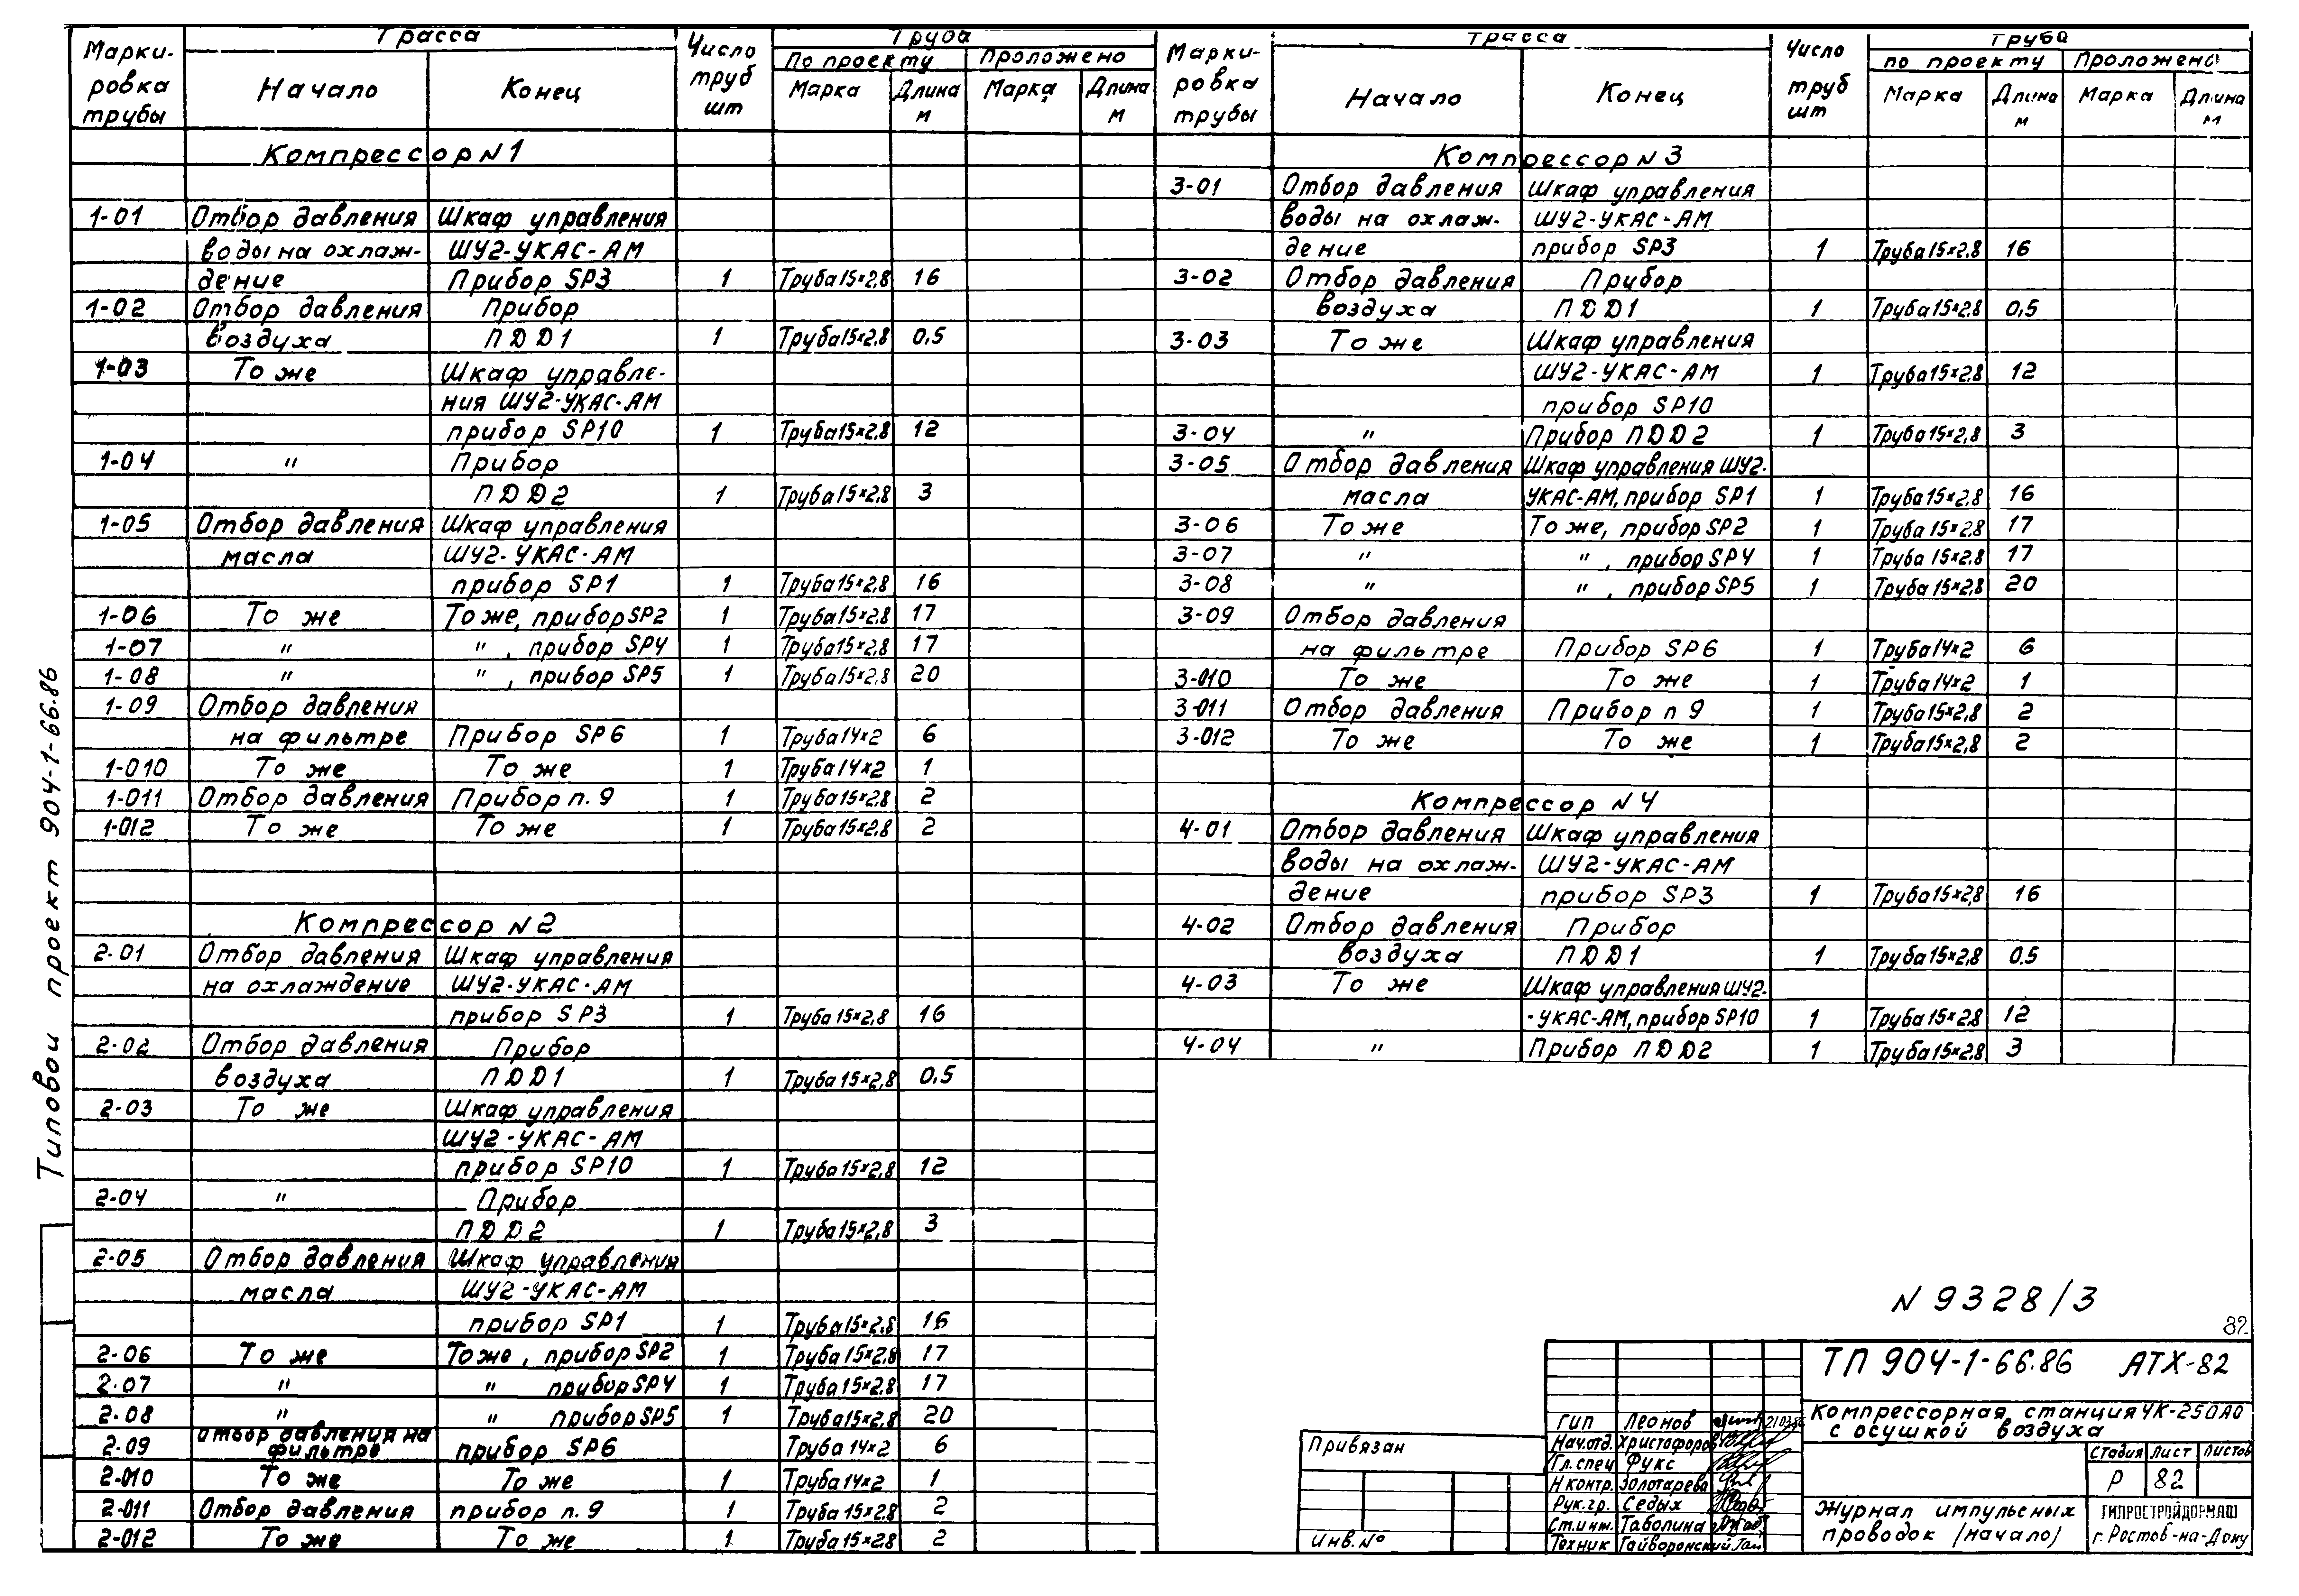 Типовой проект 904-1-66.86
Марки- Трасса Число Труба
ровка Начало Конец труб По проекту Проложено
трубы шт Марка Длина м Марка Длина м
Компрессор N1
1-01 Отбор давления Шкаф управления
воды на охлаж- ШУ2-УКАС-АМ
дение Прибор SP3 1 Труба15×2,8 16
1-02 Отбор давления Прибор
воздуха ПДД1 1 Труба15×2,8 0,5
1-03 То же Шкаф управле-
ния ШУ2-УКАС-АМ
прибор SP10 1 Труба15×2,8 12
1-04 " Прибор
ПДД2 1 Труба15×2,8 3
1-05 Отбор давления Шкаф управления
масла ШУ2-УКАС-АМ
прибор SP1 1 Труба15×2,8 16
1-06 То же То же, прибор SP2 1 Труба15×2,8 17
1-07 " ", прибор SP4 1 Труба15×2,8 17
1-08 " ", прибор SP5 1 Труба15×2,8 20
1-09 Отбор давления
на фильтре Прибор SP6 1 Труба14×2 6
1-010 То же То же 1 Труба14×2 1
1-011 Отбор давления Прибор п.9 1 Труба15×2,8 2
1-012 То же То же 1 Труба15×2,8 2
Компрессор N2
2-01 Отбор давления Шкаф управления
на охлаждение ШУ2-УКАС-АМ
прибор SP3 1 Труба15×2,8 16
2-02 Отбор давления Прибор
воздуха ПДД1 1 Труба15×2,8 0,5
2-03 То же Шкаф управления
ШУ2-УКАС-АМ
прибор SP10 1 Труба15×2,8 12
2-04 " Прибор
ПДД2 1 Труба15×2,8 3
2-05 Отбор давления Шкаф управления
масла ШУ2-УКАС-АМ
прибор SP1 1 Труба15×2,8 16
2-06 То же То же, прибор SP2 1 Труба15×2,8 17
2-07 " " прибор SP4 1 Труба15×2,8 17
2-08 " " прибор SP5 1 Труба15×2,8 20
отбор давления на
2-09 фильтре прибор SP6 Труба14×2 6
2-010 То же То же 1 Труба14×2 1
2-011 Отбор давления прибор п.9 1 Труба15×2.8 2
2-012 То же То же 1 Труба15×2.8 2
Марки- трасса Число труба
ровка Начало Конец труб по проекту Проложено
трубы шт Марка Длина м Марка Длина м
Компрессор N3
3-01 Отбор давления Шкаф управления
воды на охлаж- ШУ2-УКАС-АМ
дение прибор SP3 1 Труба15×2,8 16
3-02 Отбор давления Прибор
воздуха ПДД1 1 Труба15×2,8 0,5
3-03 То же Шкаф управления
ШУ2-УКАС-АМ 1 Труба15×2,8 12
прибор SP10
3-04 " Прибор ПДД2 1 Труба15×2,8 3
3-05 Отбор давления Шкаф управления ШУ2-
масла УКАС-АМ, прибор SP1 1 Труба15×2,8 16
3-06 То же То же, прибор SP2 1 Труба15×2,8 17
3-07 " ", прибор SP4 1 Труба15×2,8 17
3-08 " ", прибор SP5 1 Труба15×2,8 20
3-09 Отбор давления
на фильтре Прибор SP6 1 Труба14×2 6
3-010 То же То же 1 Труба14×2 1
3-011 Отбор давления Прибор п 9 1 Труба15×2,8 2
3-012 То же То же 1 Труба15×2,8 2
Компрессор N4
4-01 Отбор давления Шкаф управления
воды на охлаж- ШУ2-УКАС-АМ
дение прибор SP3 1 Труба15×2,8 16
4-02 Отбор давления Прибор
воздуха ПДД1 1 Труба15×2,8 0.5
4-03 То же Шкаф управления ШУ2-
-УКАС-АМ, прибор SP10 1 Труба15×2,8 12
4-04 " Прибор ПДД2 1 Труба15×2,8 3
N 9328/3
82
Привязан
Инв.№
ТП 904-1-66.86 АТХ-82
ГИП Леонов 21.03.86
Нач.отд. Христофоров
Гл.спец Фукс
Н контр. Золотарева
Рук.гр. Седых
Ст.инж. Таболина
Техник Гайворонский
Компрессорная станция 4К-250А0
с осушкой воздуха
Стадия Лист Листов
Р 82
Журнал импульсных
проводок (начало)
ГИПРОСТРОЙДОРМАШ
г. Ростов-на-Дону